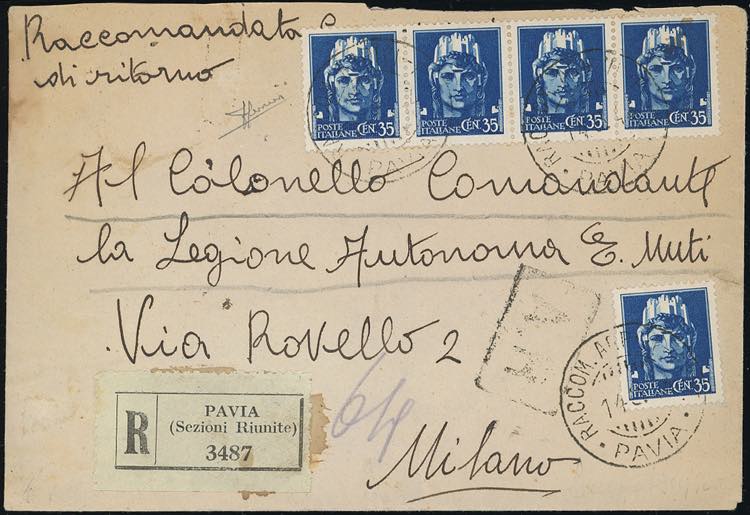 Raccomandata
di ritorno
POSTE ITALIANE CEN. 35
POSTE ITALIANE CEN. 35
POSTE ITALIANE CEN. 35
POSTE ITALIANE CEN. 35
PAVIA
PAVIA
Al Colonello Comandante
la Legione Autonoma E. Muti
Via Rovello 2
A.R
POSTE ITALIANE CEN. 35
RACCOM.
14
PAVIA
R
PAVIA
(Sezioni Riunite)
3487
64
Milano